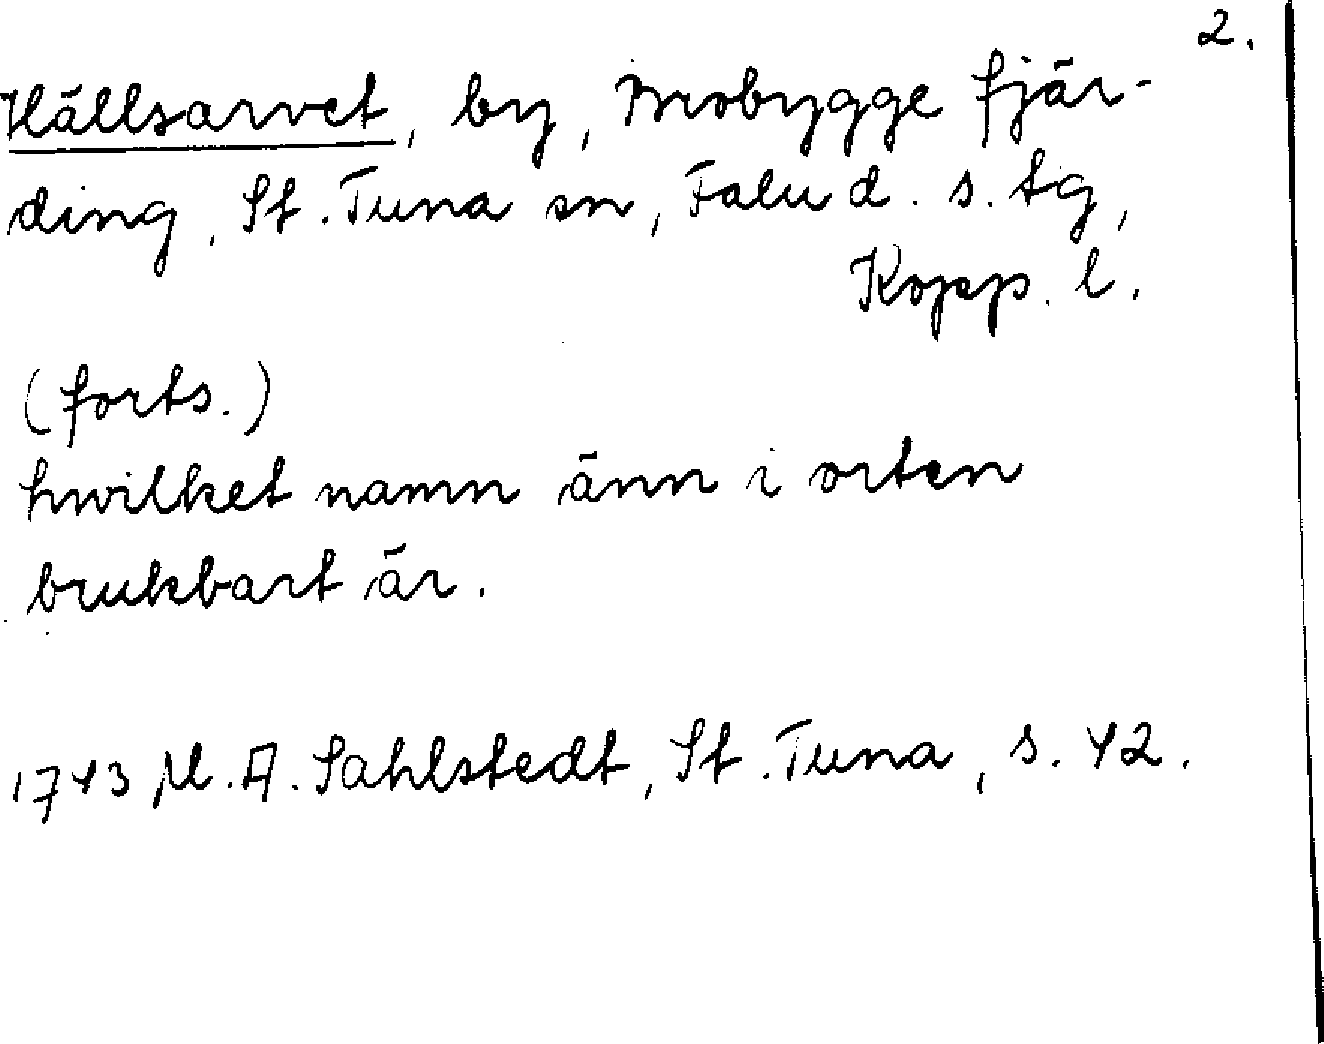 2.
Hällsarvet, by, Mobygge fjär-
ding, St. Tuna sn, Falu d. s. tg,
Kopp. l.
(forts.)
hwilket namn änn i orten
brukbart är.
1743 M. A. Sahlstedt, St. Tuna, s. 42.